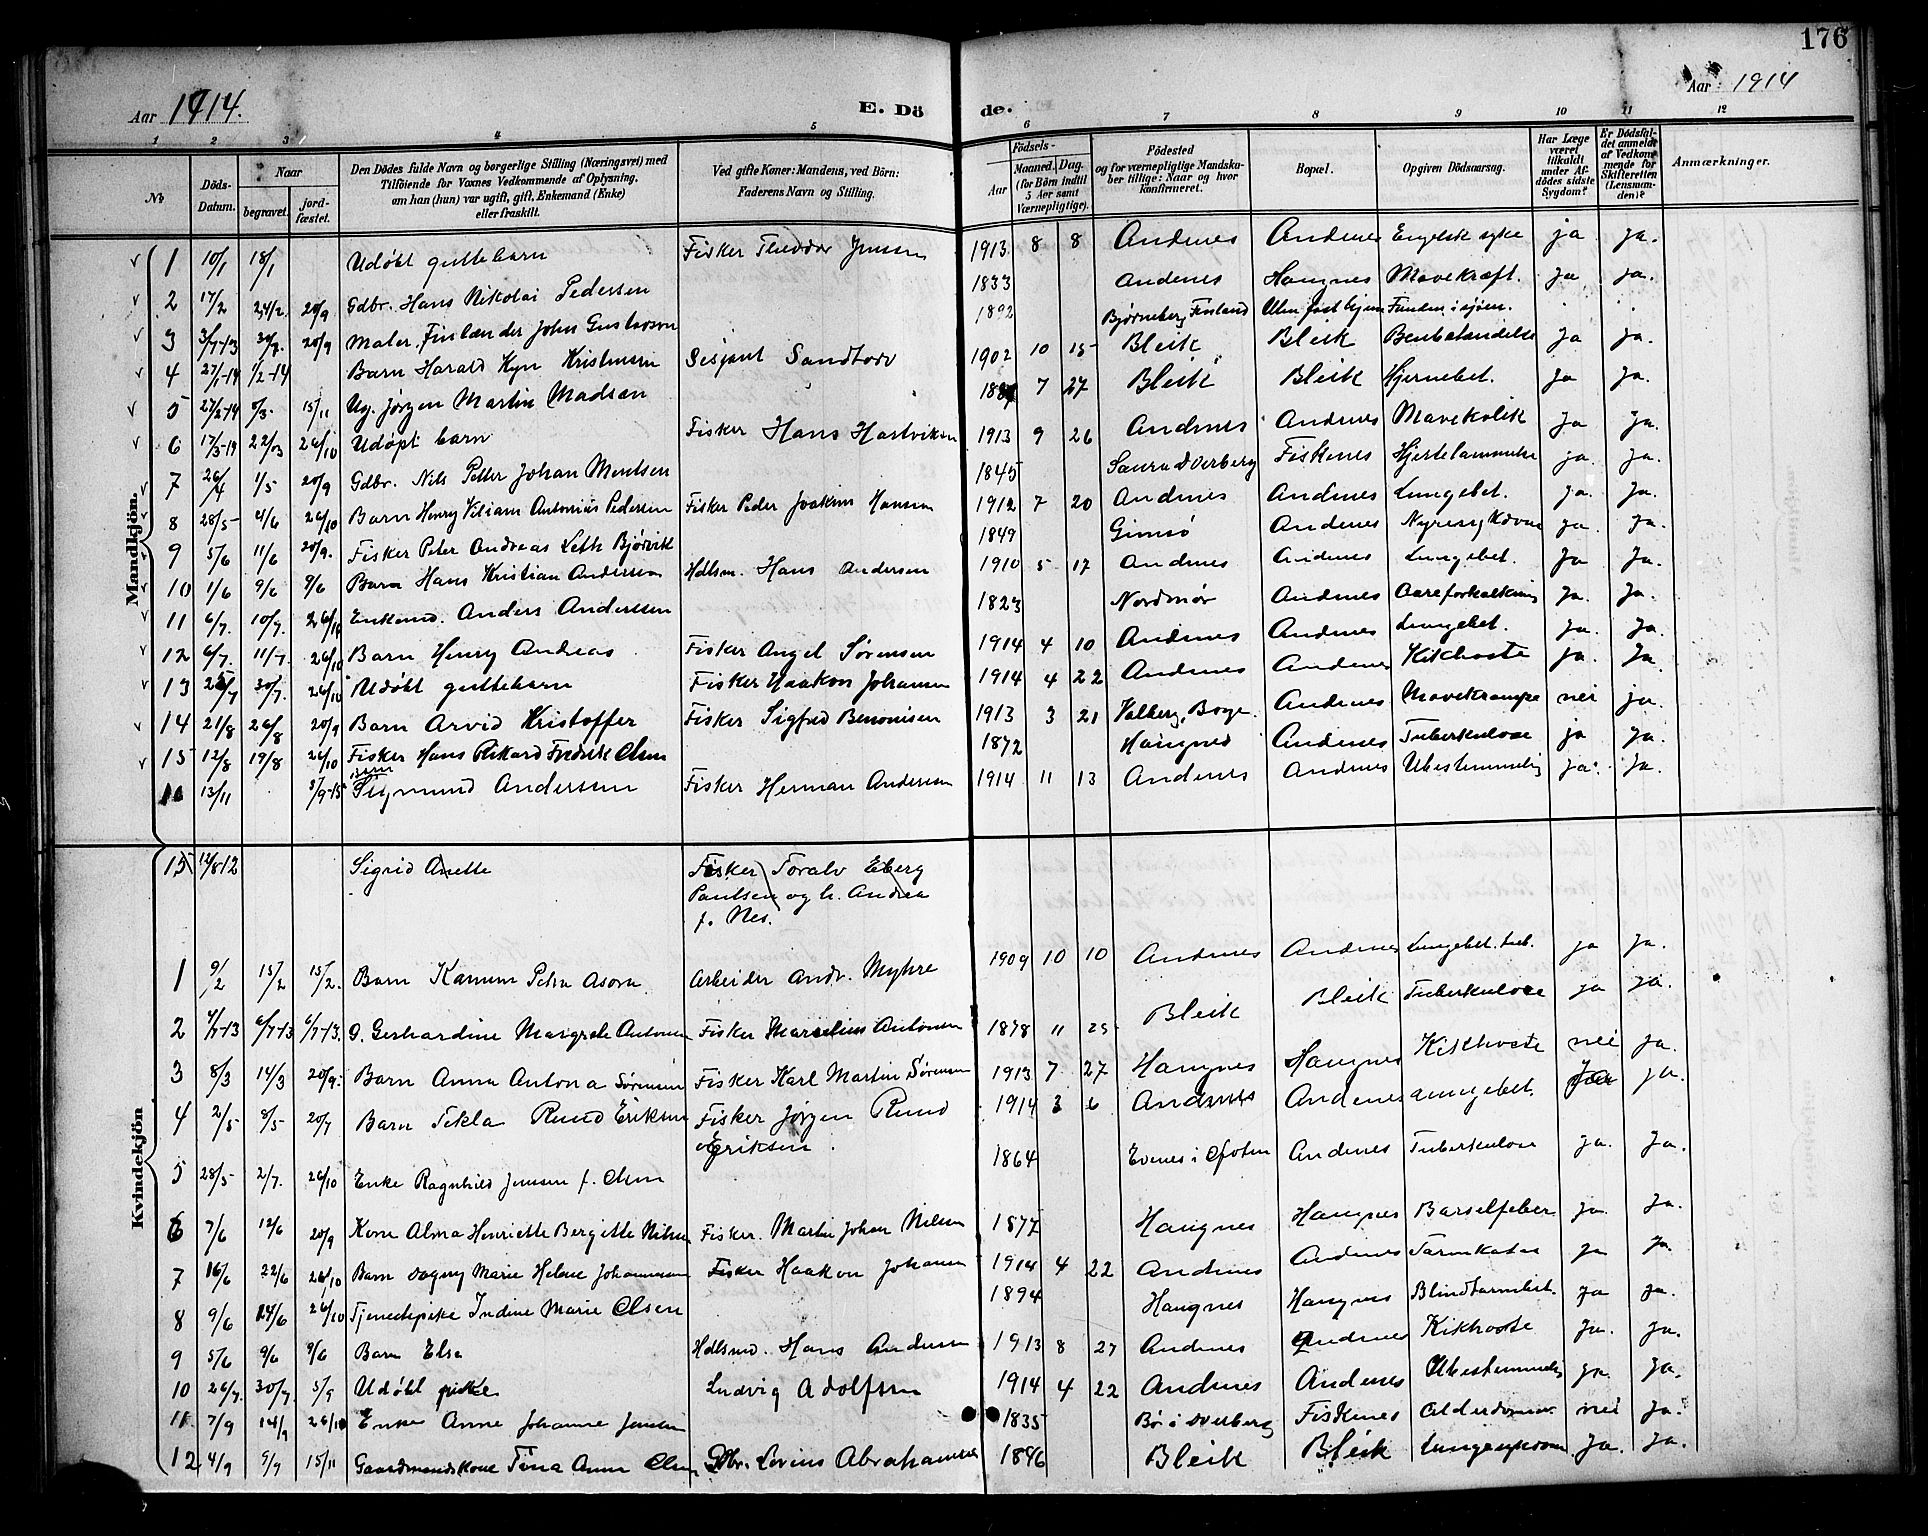 176
Aar 1914.
E. Dö de.
Aar 1914
1 2 3 4 5 6 7 8 9 10 11 12
No
Döds-Datum.
Naar
begravet.
jord-fæstet.
Den Dödes fulde Navn og borgerlige Stilling (Næringsvei) med
Tilföiende for Voxnes Vedkommende af Oplysning,
om han (hun) var ugift, gift, Enkemand (Enke)
eller fraskilt.
Ved gifte Koner: Mandens, ved Börn:
Faderens Navn og Stilling.
Födsels-
Aar
Maaned. Dag.
(for Börn indtil
5 Aar samt
Værnepligtige).
Födested
og for værnepligtige Mandska-
ber tillige: Naar og hvor
konfirmeret.
Bopæl.
Opgiven Dödsaarsag.
Har Læge
været
tilkaldt
under Af-
dödes sidste
Sygdom?
Er Dödsfal-
det anmeldt
af Vedkom-
mende for
Skifteretten
(Lensman-
den)?
Anmærkninger.
Mandkjön.
1 10/1 18/1 Udöbt guttebarn Fisker Theodor Jensen 1913 8 8 Andenes Andenes Engelsk syke ja ja.
2 17/2 24/2 20/9 Gdbr. Hans Nikolai Pedersen 1833 Andenes Haugnes Mavekræft. ja ja.
3 3/7-13 30/7. 20/9 Maler, Finlænder John Gustavson 1892 Bjørneborg, Finland Uten fast hjem Funden i sjøen.
4 27/1-14 1/2-14 Barn Harald Kyn Kristensen Sersjant Sandtorv 1902 10 15 Bleik Bleik Benbetændelse ja ja.
5 27/2-14 8/3. 15/11 Ug. Jørgen Martin Madsen 7 27 Bleik Bleik Hjernebet. ja ja.
6 17/3-14 22/03 26/10 Udöpt barn Fisker Hans Hartviksen 1913 9 26 Andenes Andenes Mavekolik ja ja.
7 26/4 1/5 20/9 Gdbr. Nils Petter Johan Mentsen 1845 Saura Dverberg Fiskenes Hjertelammelse ja. ja.
8 28/5 4/6 26/10 Barn Henry Viliam Antonius Pedersen Fisker Peder Joakim Hansen 1912 7 20 Andenes Andenes Lungebet. ja. ja.
9 5/6 11/6 20/9. Fisker Peter Andreas Leth Bjørvik 1849 Gimsø Andenes Nyresykdom ja. ja.
10 1/6 9/6 9/6 Barn Hans Kristian Andersen Hdlsm. Hans Andersen 1910 5 17 Andenes Andenes Lungebet. ja ja.
11 6/7. 10/7. 26/10 Enkemd. Anders Anderssen 1823 Nordmør Andenes Aareforkalkning ja. ja.
12 6/7. 11/7. 26/10 Barn Henry Andreas Fisker Angel Sørensen 1914 4 10 Andenes Andenes Lungebet. ja. ja.
13 25/7 30/7. 26/10 Udöbt guttebarn Fisker Haakon Johansen 1914 4 22 Andenes Andenes Kikhoste ja. ja
14 21/8 26/8 20/9 Barn Arvid Kristoffer Fisker Sigfred Benonisen 1913 3 21 Valberg, Borge. Andenes Mavekrampe nei ja.
15 12/8 19/8 26/10 Fisker Hans Rikard Fredrik Olsen 1872 Haugnes Andenes Tuberkulose ja ja.
16 13/11 5/9-15 Barn Sigmund Andersen Fisker Herman Andersen 1914 11 13 Andenes Andenes Ubestemmelig ja. ja.
Kvindekjön
15 12/8-12 Sigrid Anette Fisker Toralv Eberg
Paulsen og h. Andrea
f. Nes.
1 9/2 15/2 15/2. Barn Karnum Petra Asora Arbeider Andr. Myhre 1909 10 10 Andenes Andenes Lungebet. tub. ja ja.
2 4/7-13 6/7-13 6/7-13. G. Gerhardine Margrete Antonsen Fisker Marselius Antonsen 1878 11 25 Bleik Bleik Tuberkulose ja ja.
3 8/3 14/3 20/9. Barn Anna Antona Sørensen Fisker Karl Martin Sørensen 1913 7 27 Haugnes Haugnes Kikhoste nei ja.
4 2/5 8/5 20/7 Barn Tekla Rund Eriksen Fisker Jørgen Rund
Eriksen. 1914 3 6 Andenes Andenes Lungebet. ja.
5 28/5 2/7. 26/10 Enke Ragnhild Jensen f. Olsen 1864 Evenes i Ofoten Andenes Tuberkulose ja. ja.
6 7/6 12/6 20/9 Kone Alma Henriette Bergitte Nilsen Fisker. Martin Johan Nilsen 1877 Haugnes Haugnes Barselfeber ja. ja.
7 16/6 22/6 26/10 Barn Dagny Marie Helene Johannessen Fisker Haakon Johansen 1914 4 22 Andenes Andenes Tarmkatar ja ja.
8 9/6 14/6 26/10 Tjenestepike Indine Marie Olsen 1894 Haugnes Haugnes Blindtarmbet. ja ja.
9 5/6 9/6 9/6 Barn Elsa Hdlsmd. Hans Andersen 1913 8 27 Andenes Andenes Kikhoste ja. ja.
10 26/7. 30/7 5/9 Udöbt pike Ludvig Adolfsen 1914 4 22 Andenes Andenes Ubestemmelig ja. ja.
11 7/9 14/9 26/10 Enke Anne Johanne Jensen 1835 Bø i Dverberg Fiskenes Alderdom nei ja.
12 4/9 9/9 15/11 Gaardmandskone Tina Anna Olsen Gdbr. Lovins Abrahamsen 1846 Bleik Bleik Lungesykdom ja. ja.